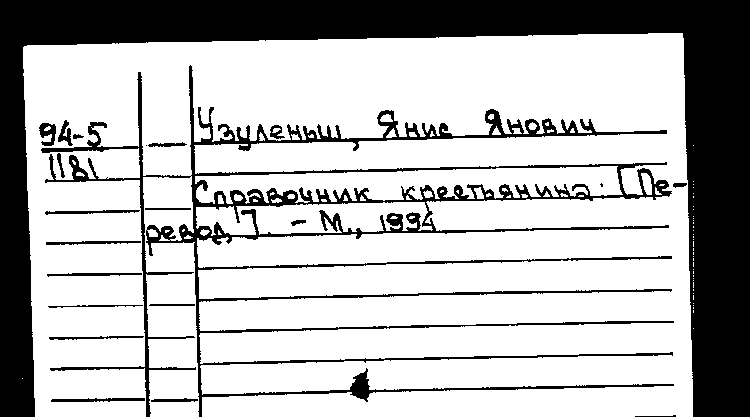 94-5
1181
Узуленьш, Янис Янович
Справочник крестьянина: [Пе-
ревод]. - М., 1994